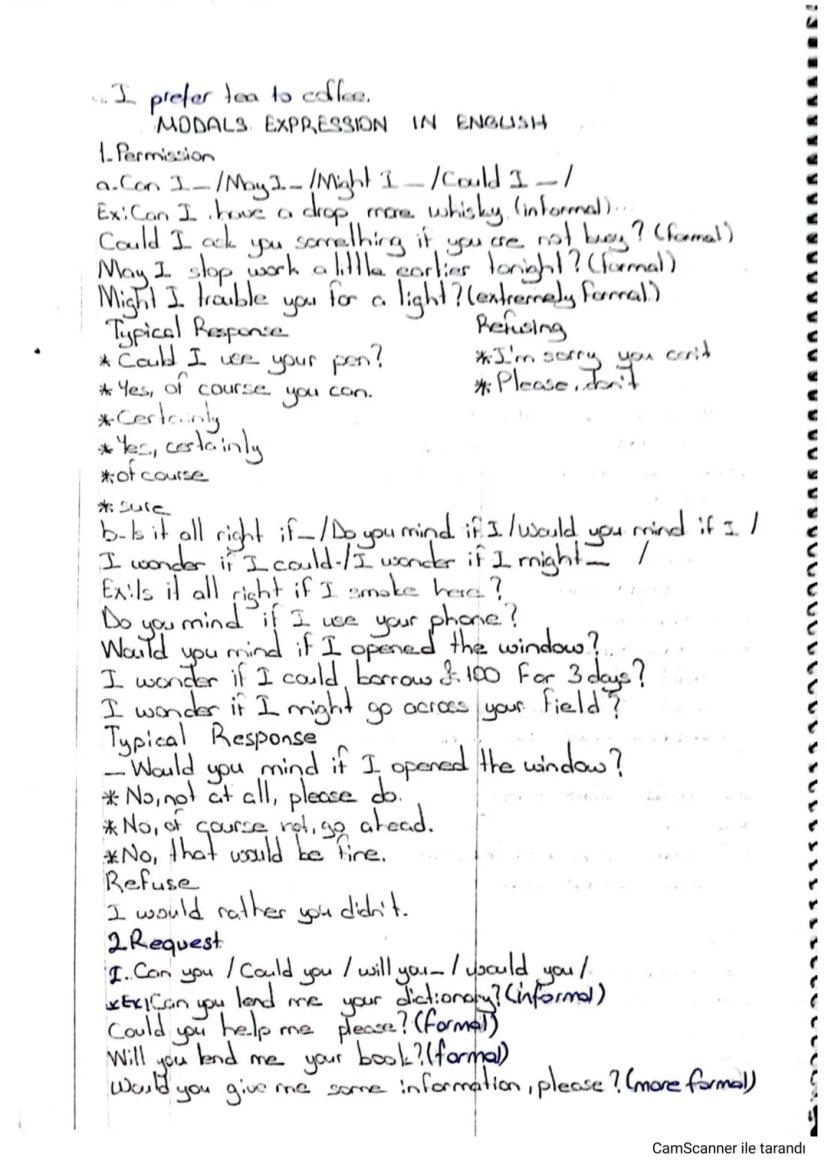 I prefer tea to coffee.
MODALS EXPRESSION IN ENGLISH
1. Permission
a. Can I _ / May I _ / Might I _ / Could I _ /
Ex: Can I have a drop more whisky (informal)...
Could I ask you something if you are not busy? (formal)
May I stop work a little earlier tonight? (formal)
Might I trouble you for a light? (extremely formal)
Typical Response
* Could I use your pen?
* Yes, of course you can.
* Certainly
* Yes, certainly
* of course
* sure
Refusing
* I'm sorry you can't
* Please, don't
b- Is it all right if _ / Do you mind if I / Would you mind if I /
I wonder if I could - / I wonder if I might _ /
Ex: Is it all right if I smoke here?
Do you mind if I use your phone?
Would you mind if I opened the window?
I wonder if I could borrow £ 100 for 3 days?
I wonder if I might go across your field?
Typical Response
_ Would you mind if I opened the window?
* No, not at all, please do.
* No, of course not, go ahead.
* No, that would be fine.
Refuse
I would rather you didn't.
2. Request
I. Can you / Could you / will you _ / would you /
* Ex/ Can you lend me your dictionary? (informal)
Could you help me please? (formal)
Will you lend me your book? (formal)
Would you give me some information, please? (more formal)
CamScanner ile tarandı